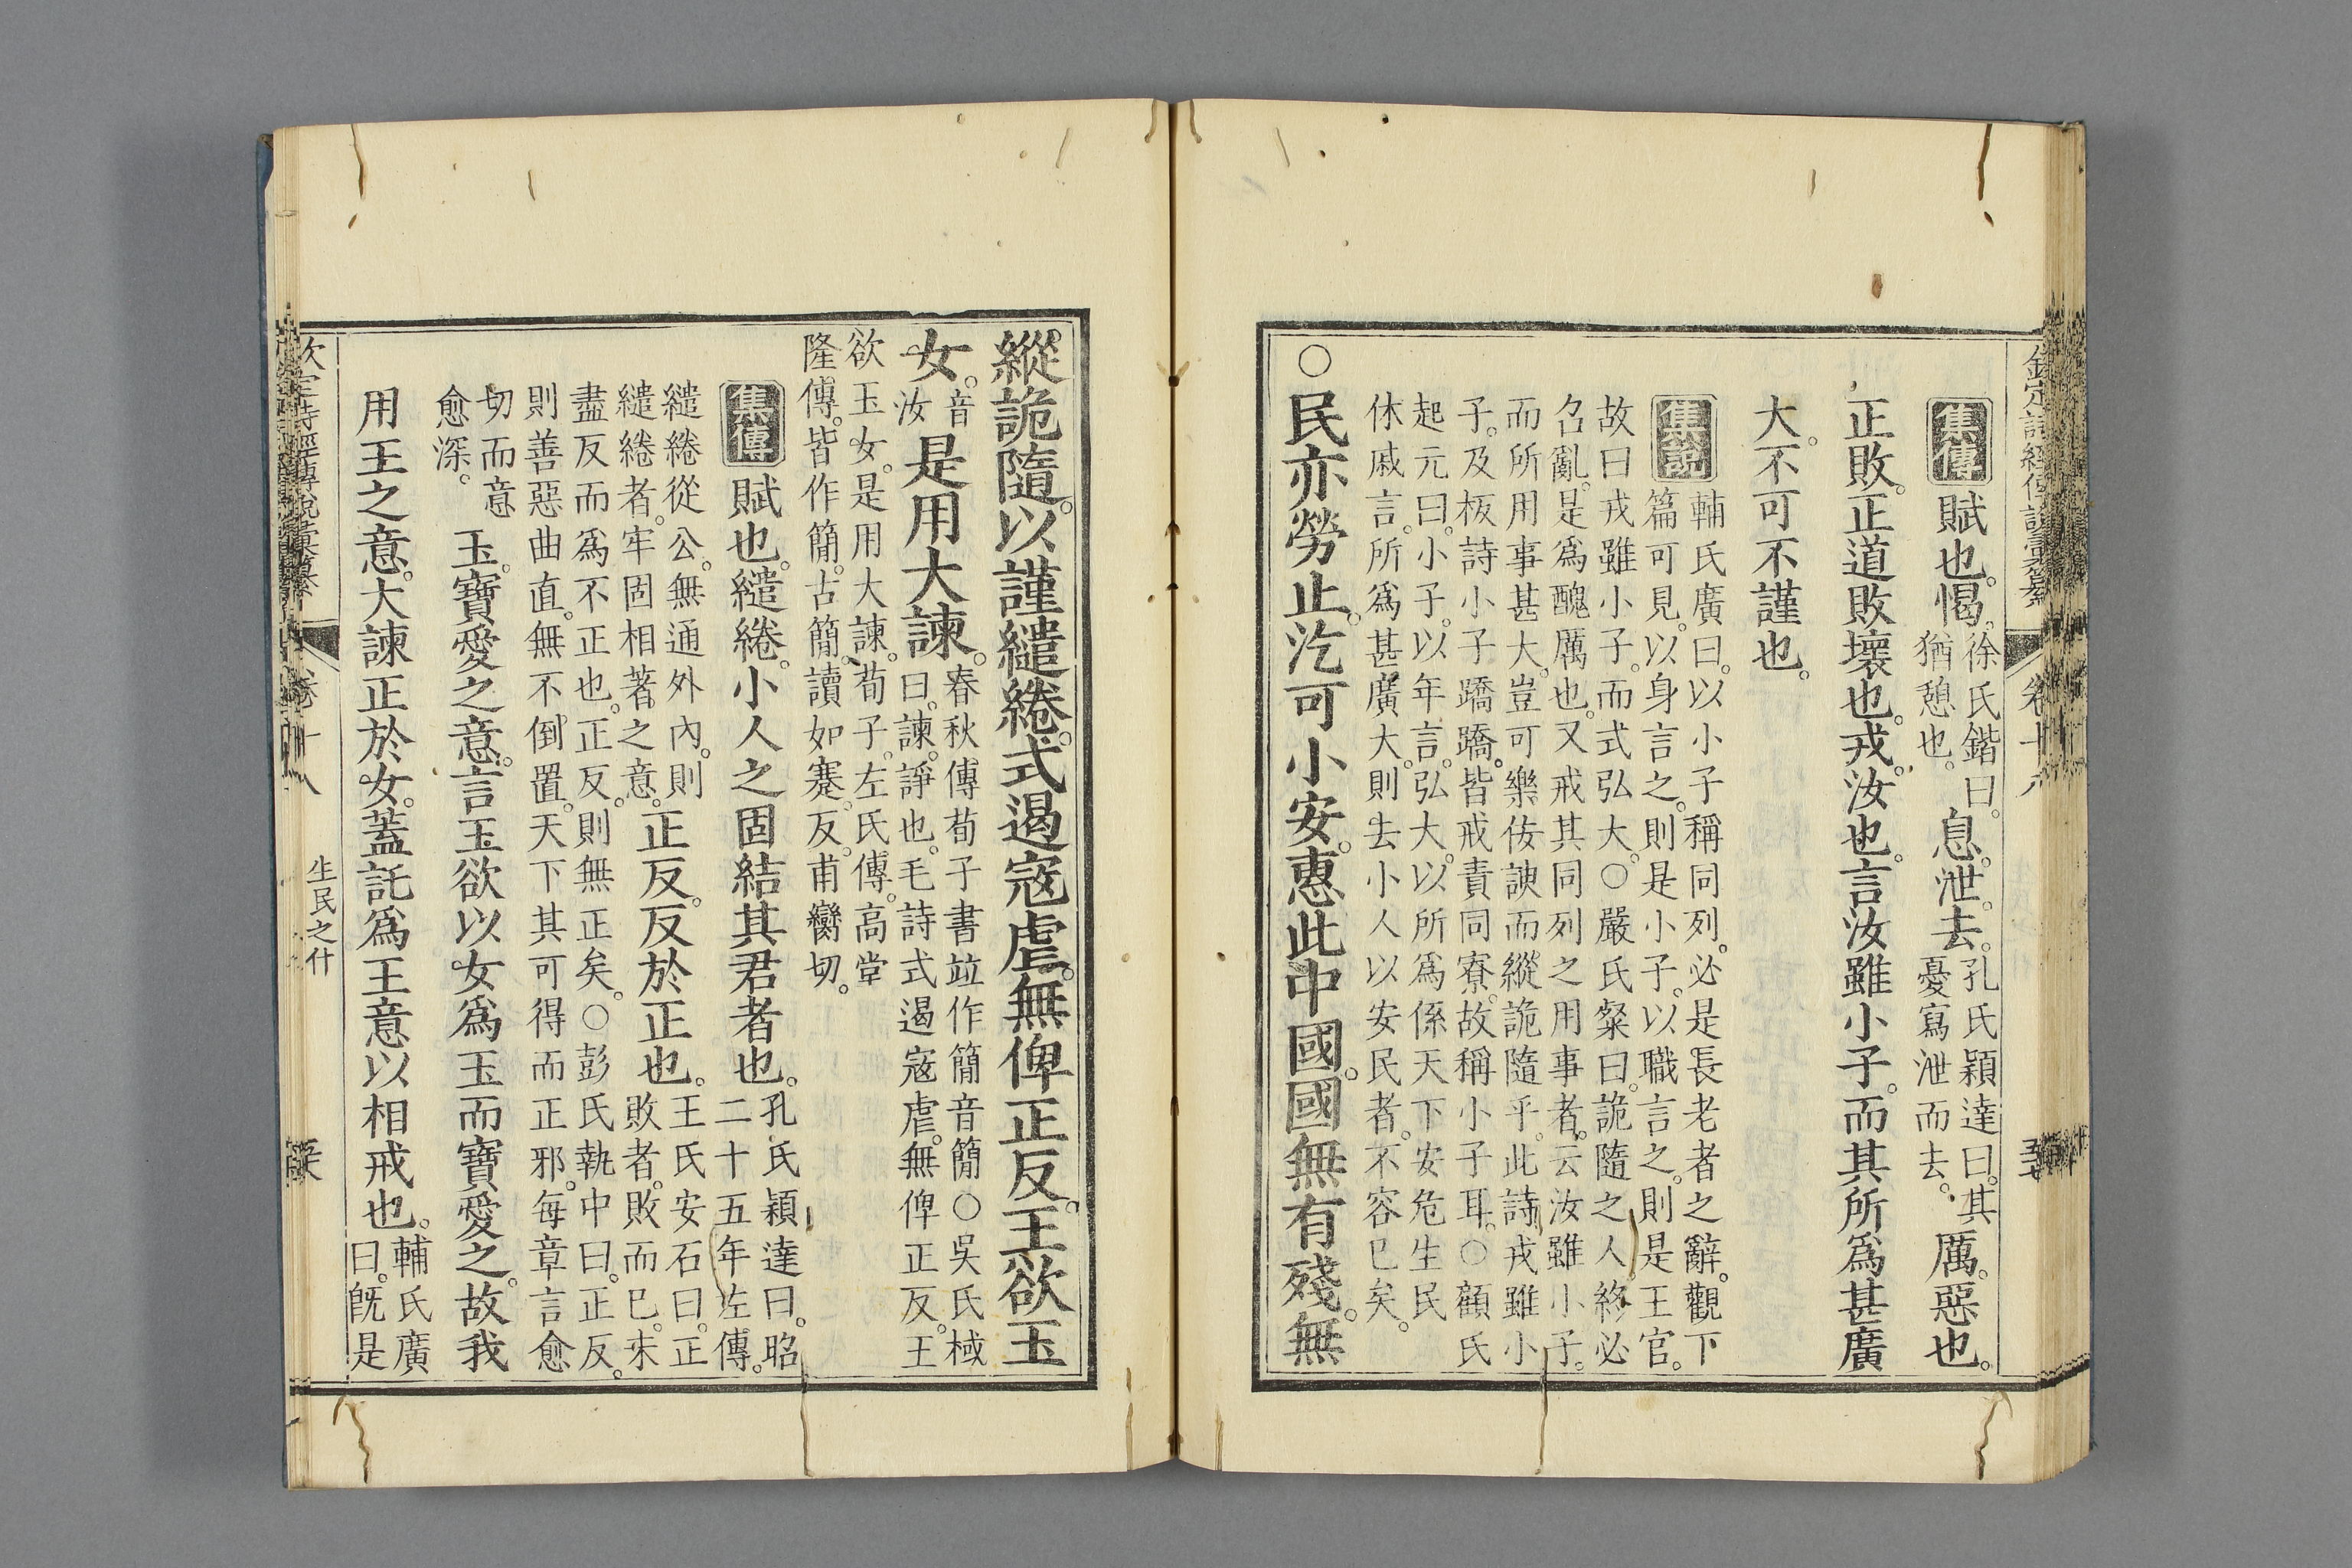 欽定詩經傳說彙纂 卷十八
集傳 賦也。愒。徐氏鍇曰。猶憩也。息。泄。去。孔氏穎達曰。其憂寫泄而去。厲。惡也。
正敗。正道敗壞也。戎。汝也。言汝雖小子。而其所爲甚廣
大。不可不謹也。
集說 輔氏廣曰。以小子稱同列。必是長老者之辭。觀下
篇可見。以身言之。則是小子。以職言之。則是王官。
故曰戎雖小子。而式弘大。○嚴氏粲曰。詭隨之人。終必
召亂。是爲醜厲也。又戒其同列之用事者。云汝雖小子。
而所用事甚大。豈可樂佞諛而縱詭隨乎。此詩戎雖小
子。及板詩小子蹻蹻。皆戒責同寮。故稱小子耳。○顧氏
起元曰。小子。以年言。弘大。以所爲係天下安危生民
休戚言。所爲甚廣大。則去小人以安民者。不容已矣。
○民亦勞止。汔可小安。惠此中國。國無有殘。無
縱詭隨。以謹繾綣。式遏寇虐。無俾正反。王欲玉
女。音汝是用大諫。春秋傳荀子書竝作簡音簡○吳氏棫曰。諫。諍也。毛詩式遏寇虐。無俾正反。王
欲玉女。是用大諫。荀子。左氏傳。高堂
隆傳。皆作簡。古簡。讀如蹇。反。甫臠切。
集傳 賦也。繾綣。小人之固結其君者也。孔氏穎達曰。昭二十五年左傳。
繾綣從公。無通外內。則繾綣者。牢固相著之意。正反。反於正也。王氏安石曰。正敗者。敗而已。未
盡反而爲不正也。正反。則無正矣。○彭氏執中曰。正反。
則善惡曲直。無不倒置。天下其可得而正邪。每章言愈
切而意愈深。玉。寶愛之意。言玉欲以女爲玉而寶愛之。故我
用王之意。大諫正於女。蓋託爲王意以相戒也。輔氏廣曰。旣是
欽定詩經傳說彙纂 卷十八 生民之什